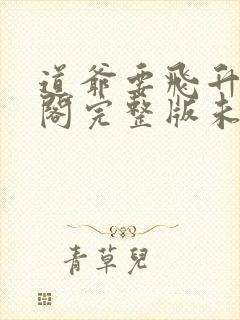 道爷要飛升
閣完整版未
青草兒